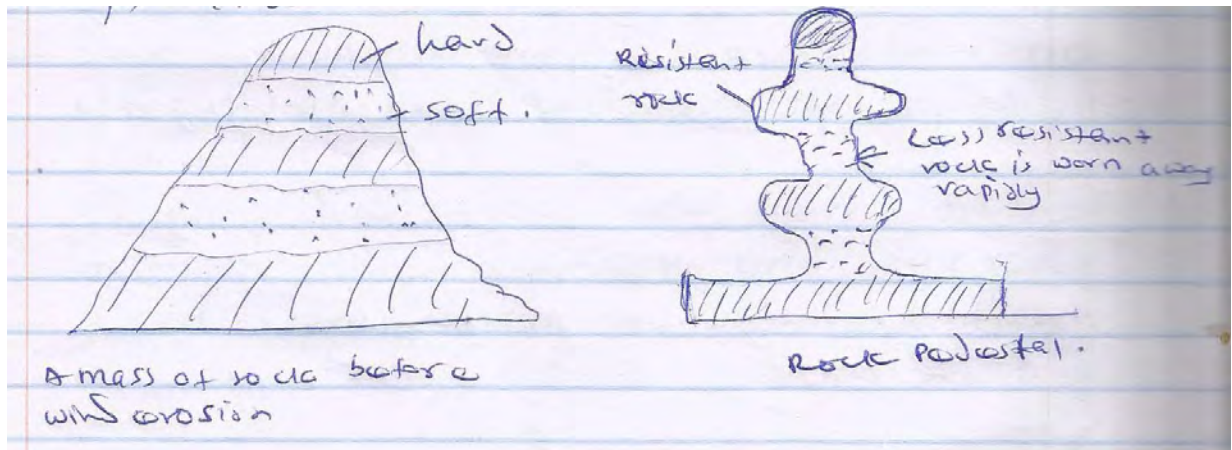 hard
soft.
A mass of rock before
wind erosion
Resistant
rock
Less resistant
rock is worn away
rapidly
Rock Pedestal.